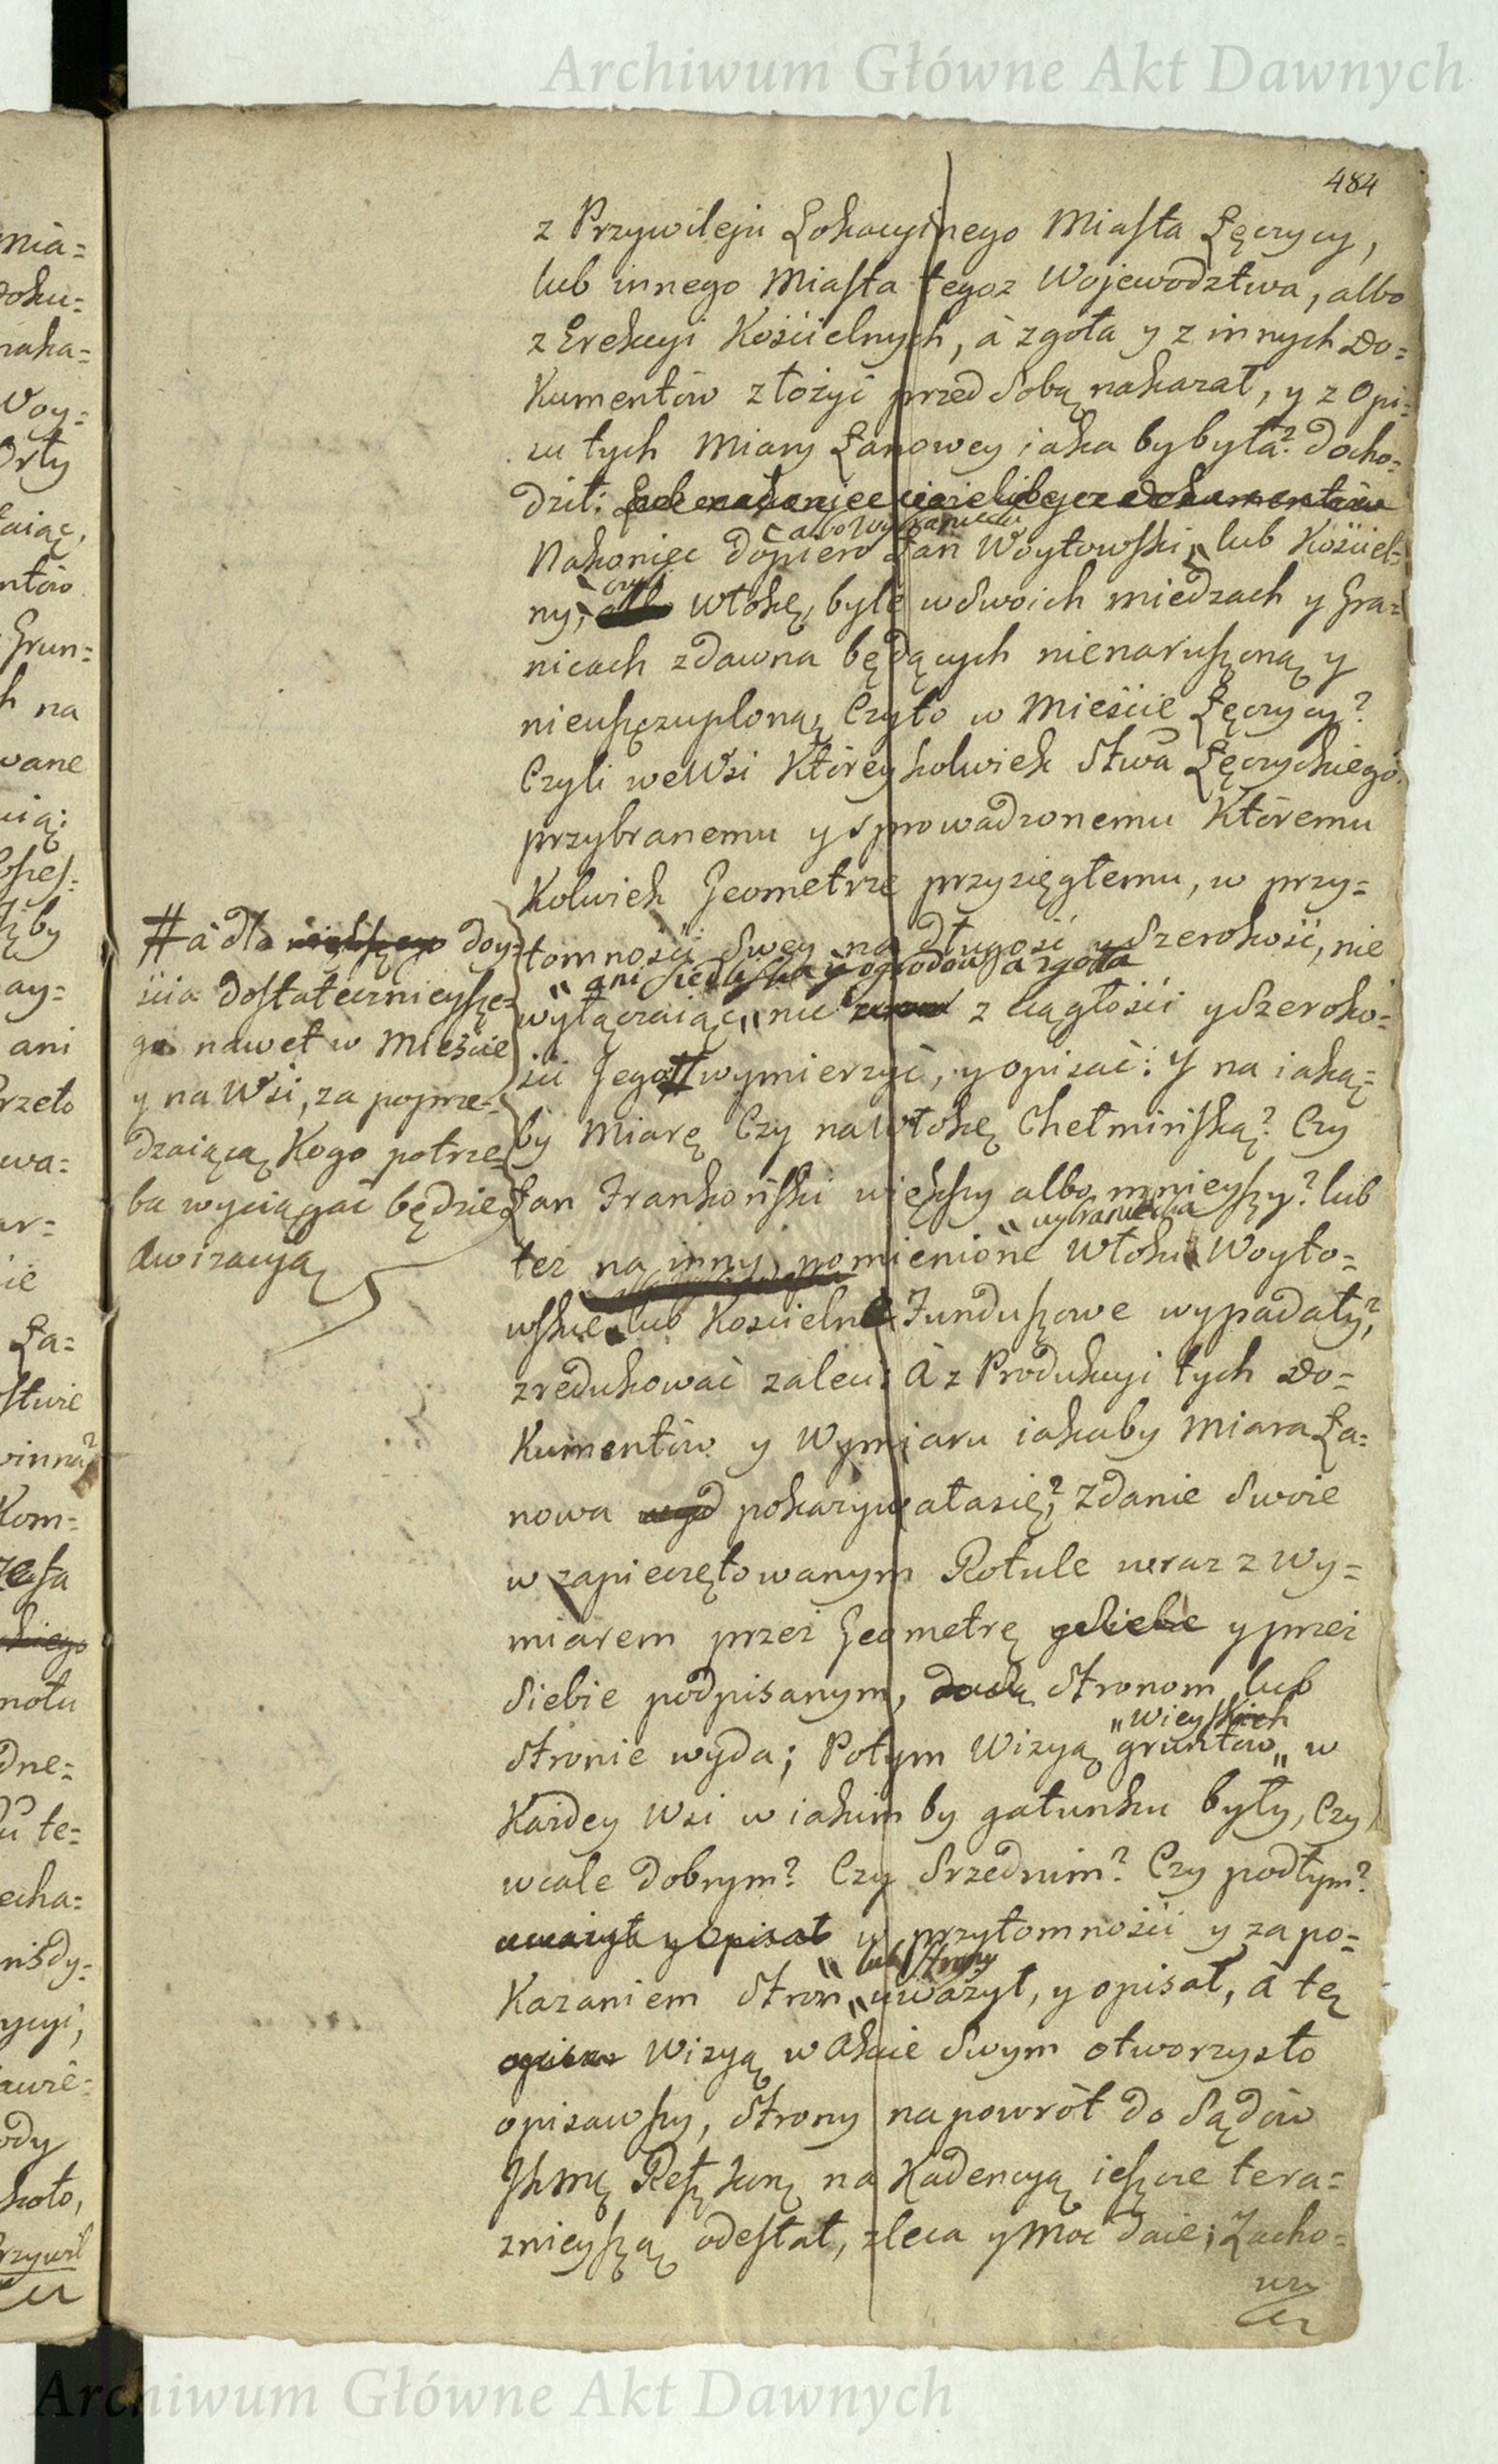 Archiwum Główne Akt Dawnych
484
z Przywileju Lokacyinego Miasta Łęczycy,
lub innego Miasta tegoz Wojewodztwa, albo
z Erekcyi Kościelnych, à zgoła y z innych Do=
kumentów złożyć przed Sobą nakazał, y z Opi=
su tych Miary Łanowey iaka by była? docho=
dził:
albo Wybraniecki
Nakoniec dopiero Łan Woytowski, lub Kościel=
czyli
ny, albo Włokę, byle w Swoich miedzach y Gra=
nicach zdawna będących nienaruszoną y
nieuszczuploną, Czyto w Mieście Łęczycy?
Czyli we Wsi Któreykolwiek Stwa Łęczyckiego.
przybranemu y sprowadzonemu Któremu
Kolwiek Geometrze przysięgłemu, w przy=
tomności Swey na długość y Szerokość, nie
ani Siedliska y ogrodów à zgoła
wyłączaiąc, nic z ciągłości y Szeroko=
ści Jego # wymierzyć, y opisać: Y na iaką=
by Miarę Czy na Włokę Chełmińską? Czy
Łan Frankoński większy albo mnieyszy? lub
wybraniecka
tez na inny, pomienione Włoki Woyto=
wskie lub Koscielne Funduszowe wypadały?
zredukować zaleci: à z Produkcyi tych Do=
kumentów y Wymiaru iakaby Miara Ła=
nowa pokazywałasię? Zdanie Swoie
w zapieczętowanym Rotule wraz z Wy=
miarem przez Geometrę y przez
Siebie podpisanym, Stronom lub
Wieyskich
Stronie wyda; Potym Wizyą gruntów w
Kazdey Wsi w iakim by gatunku były, Czy
wcale dobrym? Czy Srzednim? Czy podłym?
uważył y Opisał w przytomności y za po=
lub Strony
Kazaniem Stron uważył, y opisał, à tę
Wizyą w Akcie Swym otworzysto
opisawszy, Strony napowrót do Sądów
na Kadencyą ieszcze tera=
znieyszą odesłał, zleca y Moc daie; Zacho=
# à dla większego doy=
ścia dostatecznieysze=
go nawet w Mieście
y na Wsi, za poprze=
dzaiącą Kogo potrze=
ba wyciągać będzie
Awizacyą
Archiwum Główne Akt Dawnych